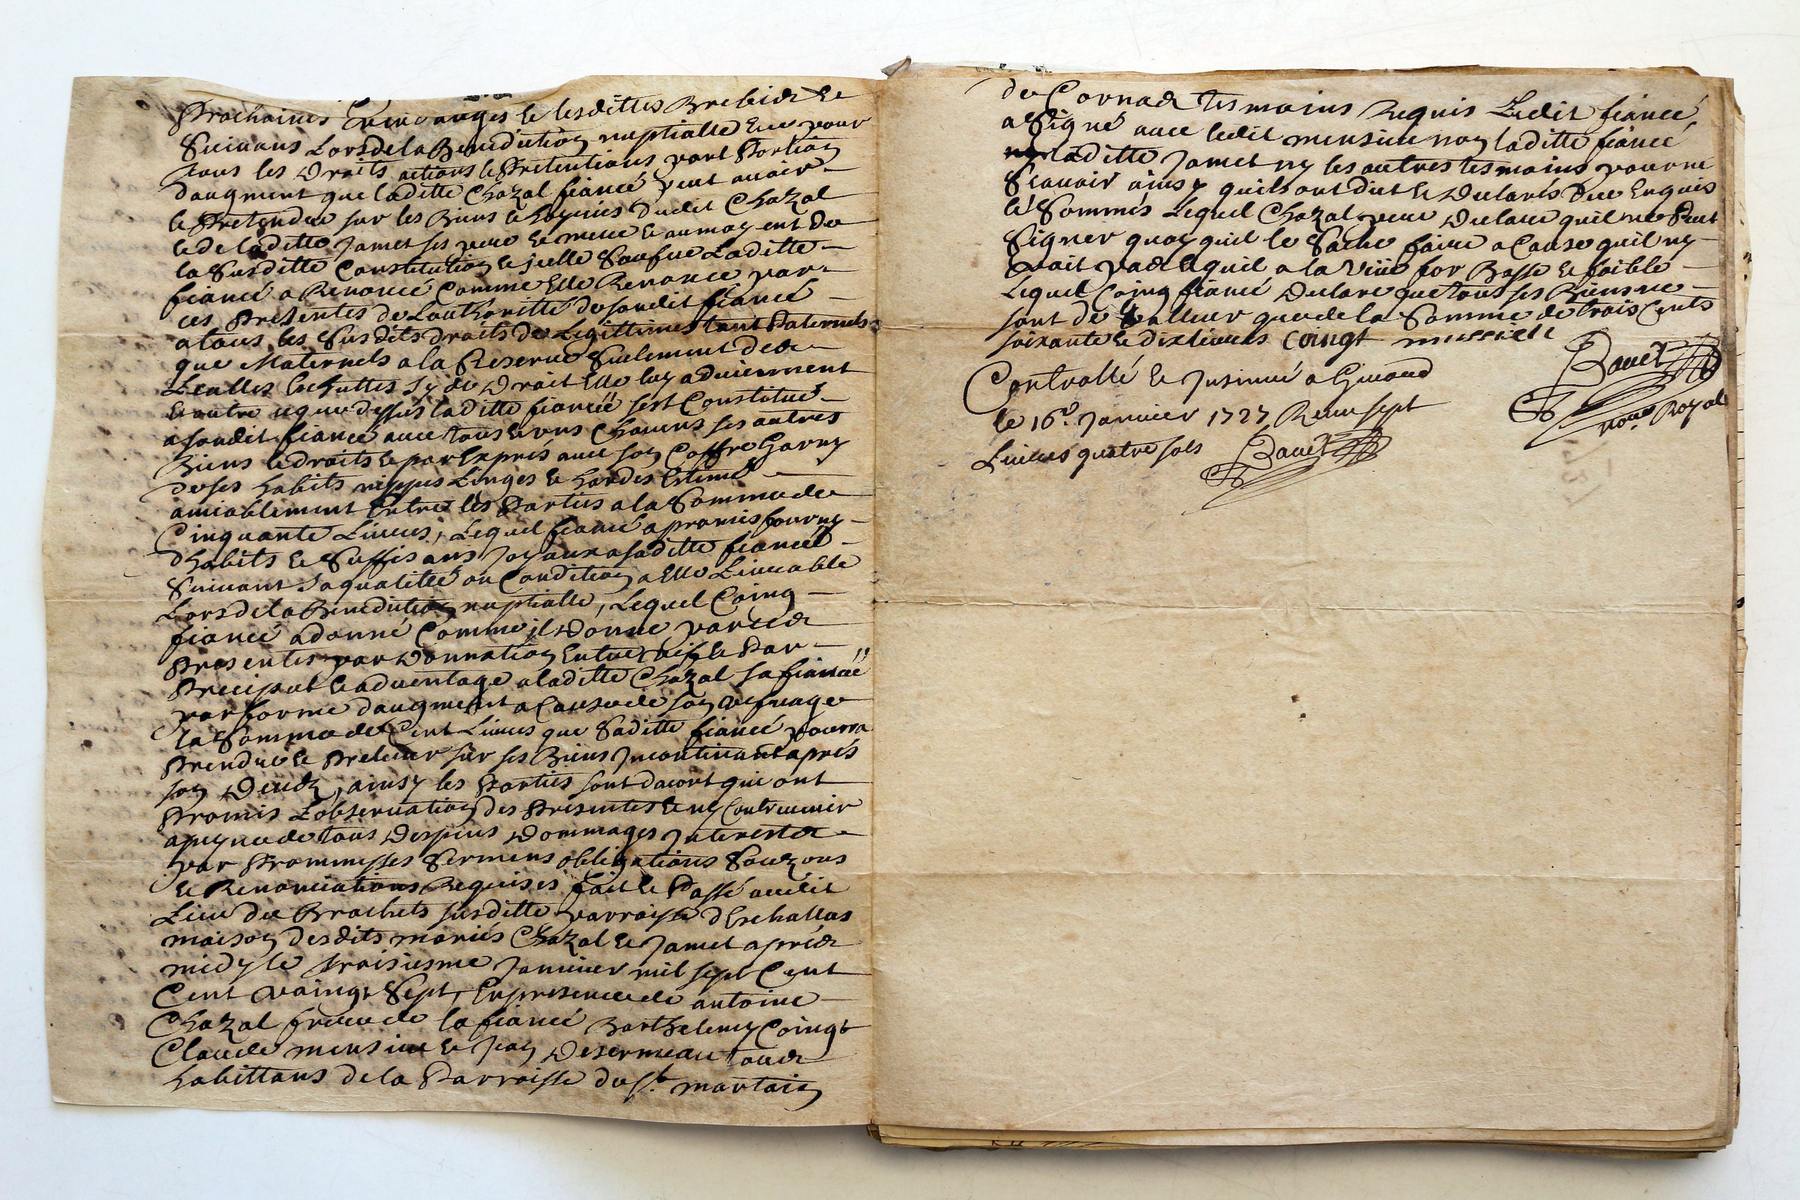 Prochaines et lesdittes Brebis et
Suivans Lors de la Benediction nuptialle Et ce pour
tous les Droits actions et Pretentions part Portion
daugment que laditte Chazal fiancé peut avoir
et Pretendre sur les Biens et hoyries dudit Chazal
et de laditte Jamet ses pere et mere et aumoyent de
la Susditte Constitution et jcelle Laditte
fiancé a Renoncé Comme Elle Renonce par
ces Presentes de Lauthoritté de sondit fiancé
a tous les Susdits droits de Legittimes tant Paternels
que Maternels a la Reserve Seulement des
sy de Droit Elle luy adviennent
Et outre ce que dessus laditte fiancéé sest Constitué
a sondit fiancé avec tous Et uns Chacuns ses autres
Biens et droits et par Exprés avec son Coffre Garny
de ses habits nippes Linges et hardes Estimé
amiablement Entre les Parties a la Somme de
Cinquante Livres, Lequel fiancé a promis fourny
dhabits et Suffisans Joyaux a saditte fiancéé
Suivant sa qualitéé ou Condition a Elle Livrable
Lors de la Benediction nuptialle, Lequel Coing
fiancé a donné Comme il Donne par ces
Presentes par Donnation Entre vifs et Par
Preciput et adventage a laditte Chazal sa fiancéé
par forme daugment a Cause de son vefvage
la Somme de Cent Livres que Saditte fiancé pourra
Prendre et Prelever sur ses Biens Incontinant aprés
son Deceds, ainsy les Parties sont dacort qui ont
Promis Lobservation des Presentes et ny Contrevenir
a peyne de tous Despens Dommages Interests
par Prommesses Sermens obligations
et Renonciations Requises fait et Passé audit
Lieu des Brachets susditte parroisse dEschallas
maison desdits mariés Chazal et Jamet aprés
midy le troisiesme Janvier mil sept Cent
Cent vaingt Sept, En presence de antoine
Chazal frere de la fiancé Barthelemy Coingt
Claude mensieu et Jean Desermeau tous
habittans de la Parroisse de St. martain
de Cornas tesmoins Requis Ledit fiancé
a Signé avec ledit mensieu non laditte fiancé
laditte Jamet ny les autres tesmoins pour ne
Scavoir ainsy quils ont dict et Declarés Enquis
et Sommés Lequel Chazal pere Declare quil ne Peut
Signer quoy quil le Sache faire a Cause quil ny
voit pas et quil a la Basse et faible
Lequel Coing fiancé Declare que tous ses Biens ne
sont de Valleur que de la Somme de trois Cents
soixante et dix livres Coingt
Controllé et Insinué a Givord
le 16e. Janvier 1727 Receu sept
Livres quatre sols
nore. Royal